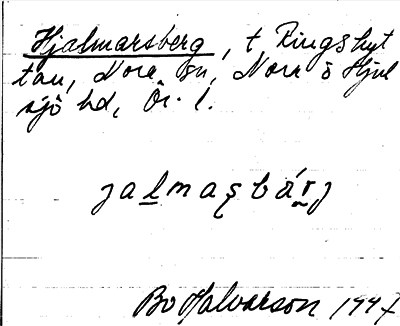 Hjalmarsberg, t Ringshyt
tan, Nora sn, Nora o Hjul
sjö hd, Ör. l.
jalmaʂbárj
Bo Halvarson 1947